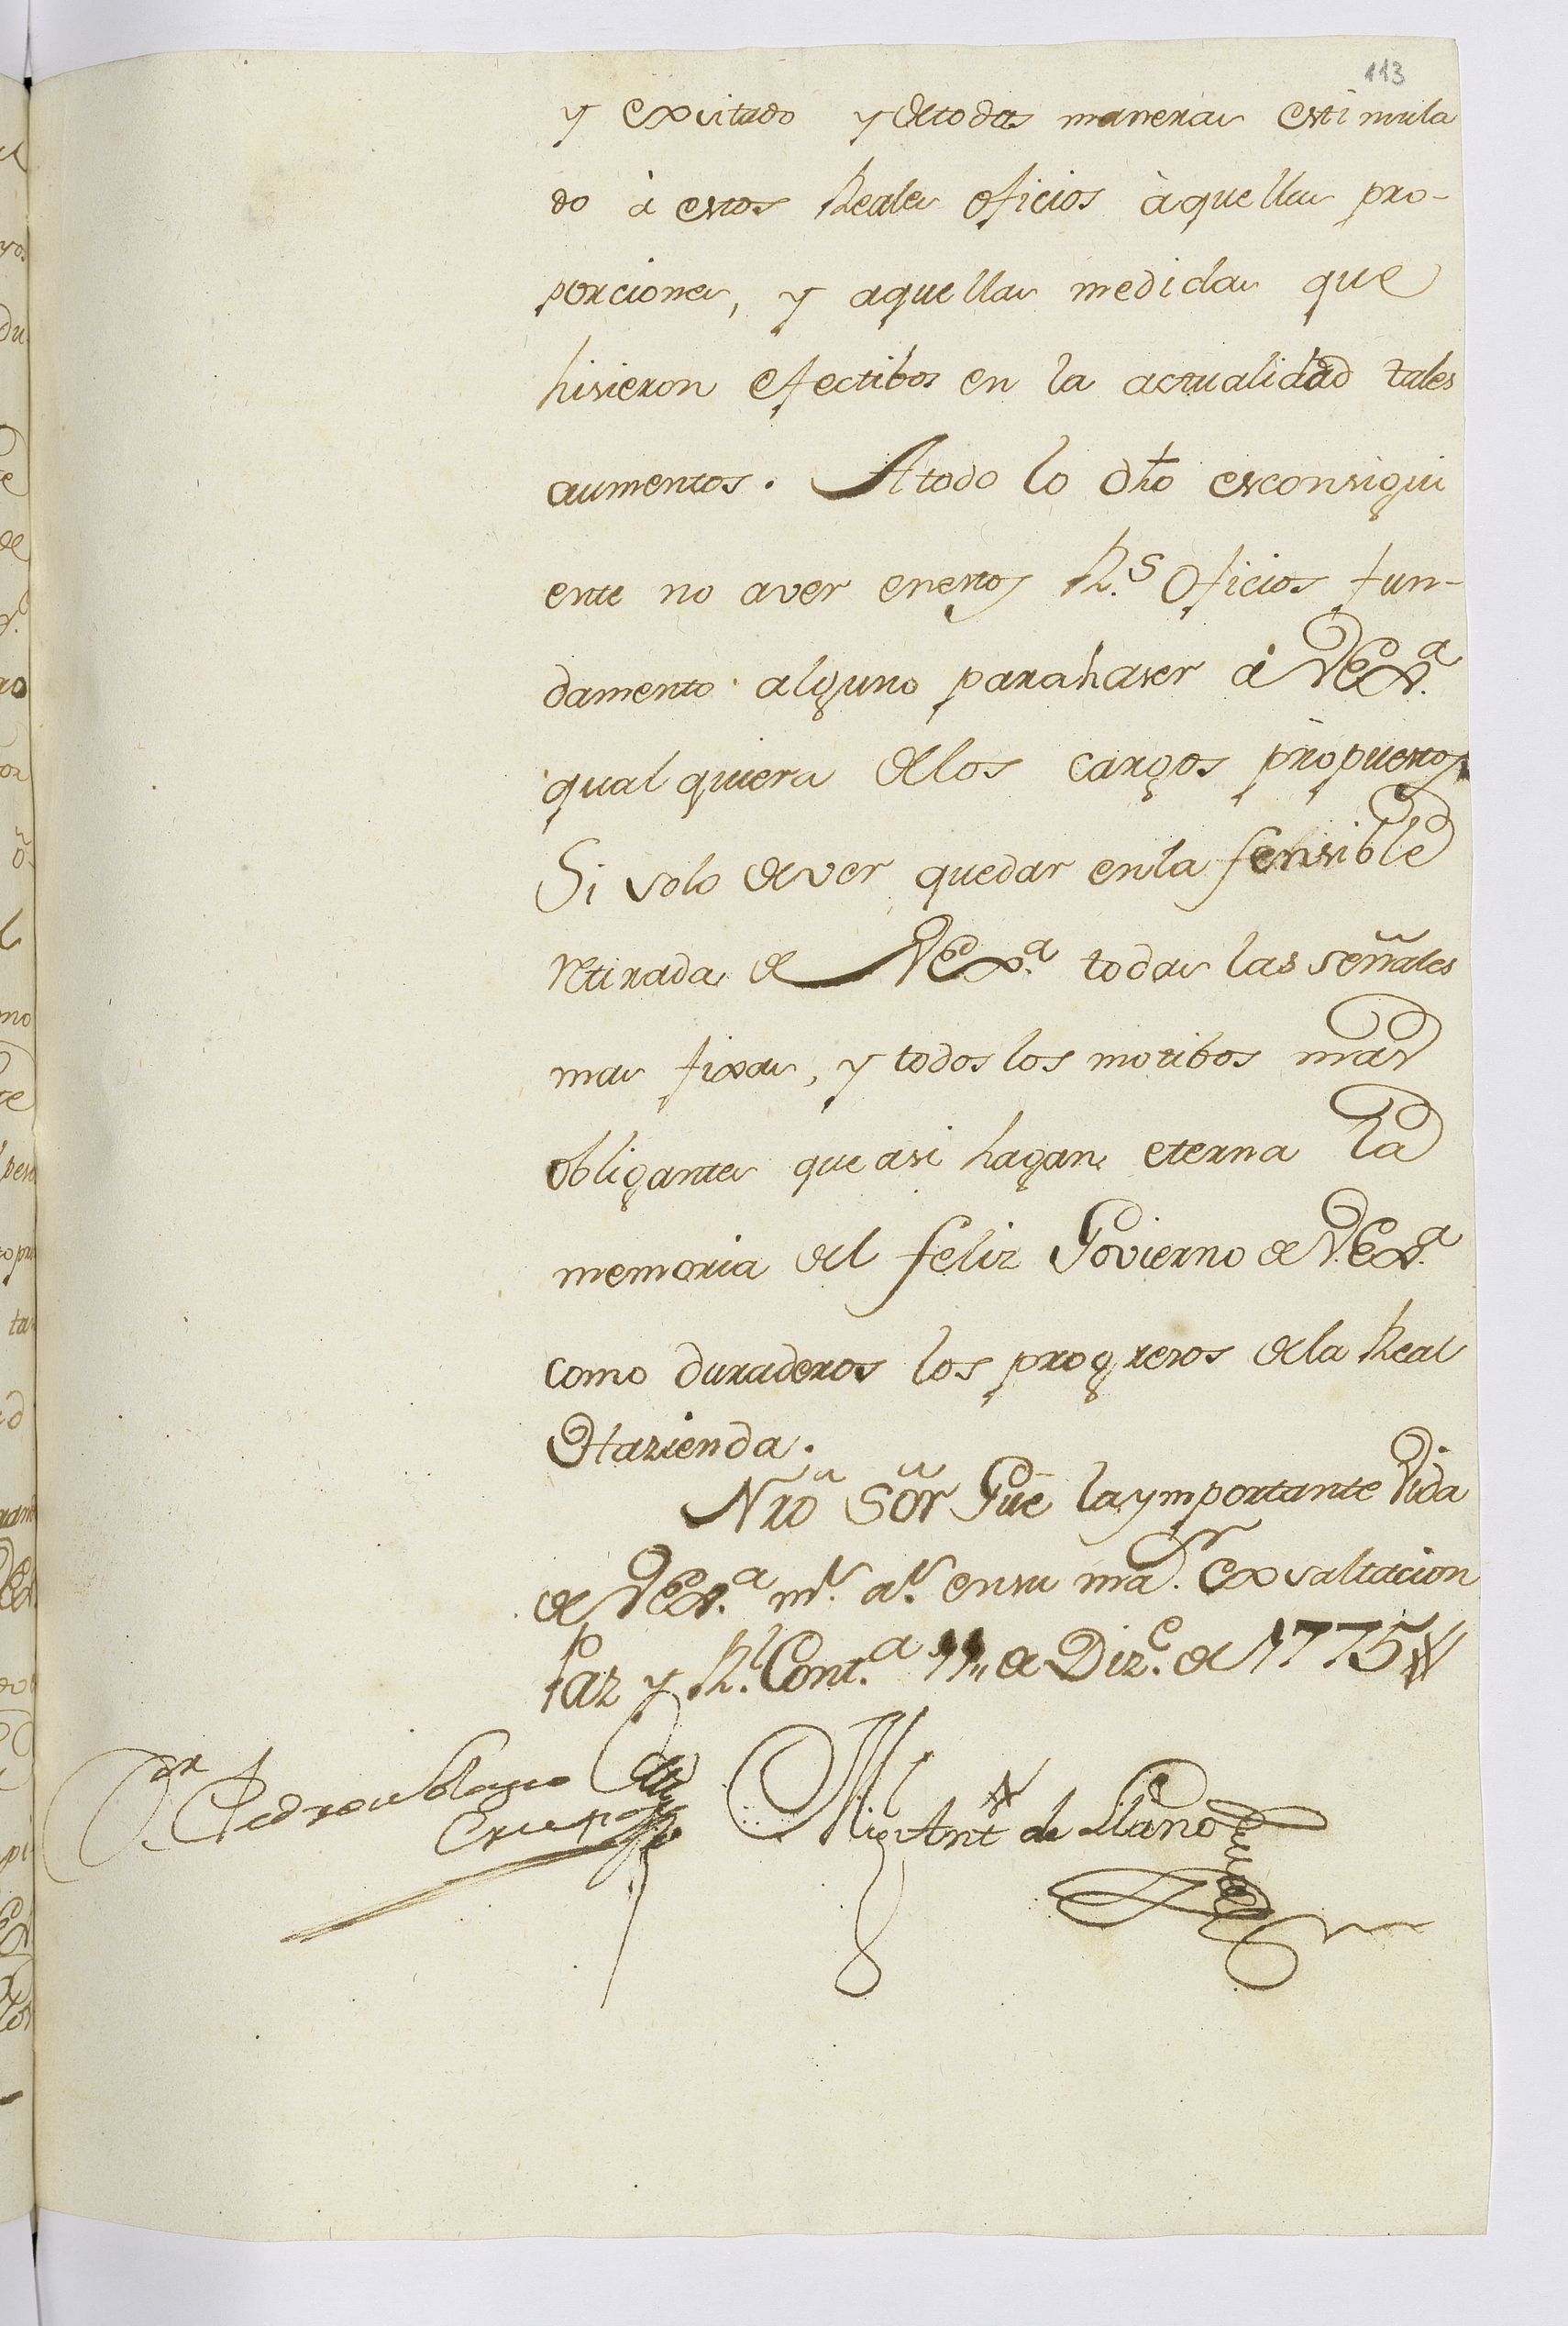 113
y exsitado y detodas maneras estimula
do à estos Reales oficios àquellas pro-
porciones, y aquellas medidas que
hisieron efectibos en la actualidad tales
aumentos. Atodo lo dho esconsigui
ente no aver enestos R.s Oficios fun-
damento alguno parahaser à VEx.a
qualquiera delos cargos propuestos
Si solo dever quedar enla sensible
retirada de VEx.a todas las señales
mas fixas, y todos los motibos mas
obligantes que asi hagan eterna la
memoria del feliz Govierno de VEx.a
como duraderos los progresos dela Real
Hazienda.
Nrõ Sõr Gue laymportante Vida
de VEx.a m.s a.s ensu ma.r exsaltacion
Paz y R.l Cont.a 11,, de Diz.e de 1775
Pedro
Mig.l Ant.o de Llano